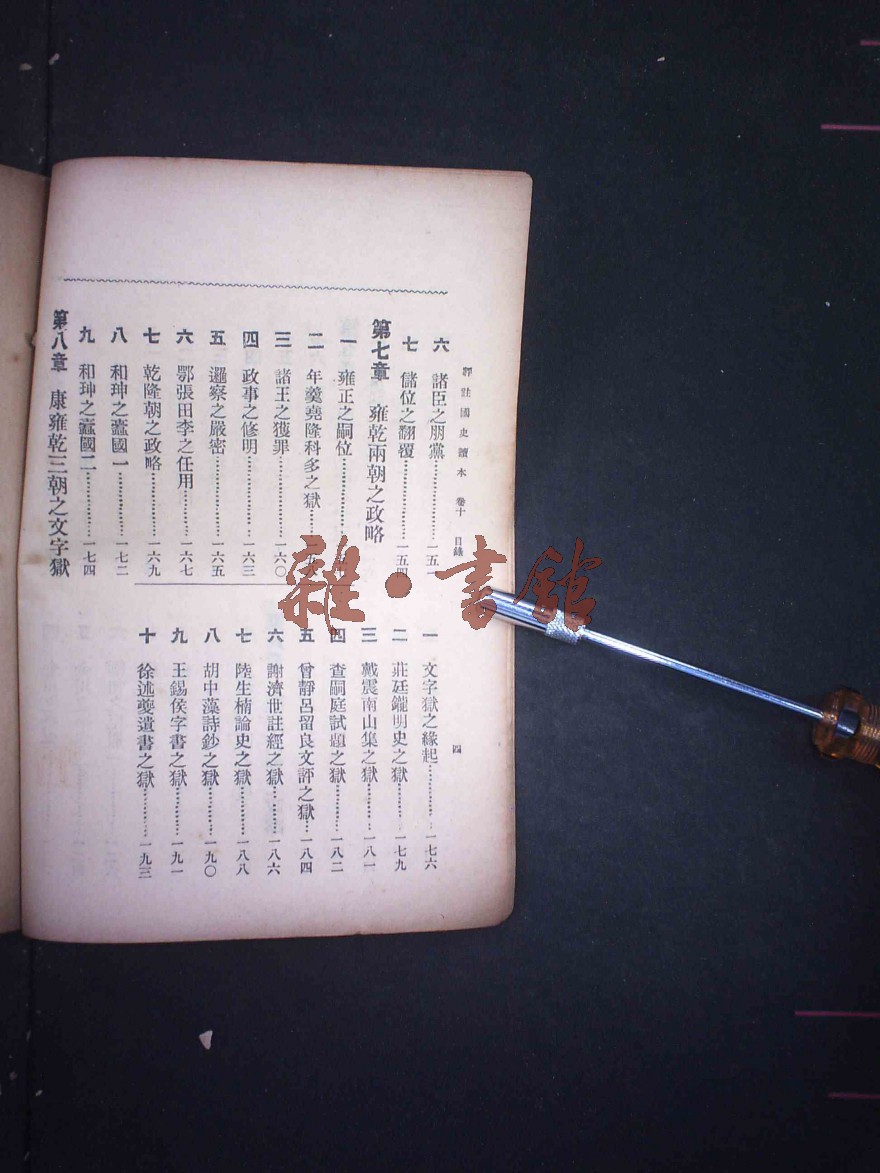 評註國史讀本 卷十 目錄 四
六 諸臣之朋黨…………一五一
七 儲位之翻覆…………一五四
第七章 雍乾兩朝之政略
一 雍正之嗣位…………
二 年羹堯隆科多之獄……一五八
三 諸王之獲罪…………一六〇
四 政事之修明…………一六三
五 邏察之嚴密…………一六五
六 鄂張田李之任用………一六七
七 乾隆朝之政略…………一六九
八 和珅之蠹國一…………一七二
九 和珅之蠹國二…………一七四
第八章 康雍乾三朝之文字獄
一 文字獄之緣起…………一七六
二 莊廷鑨明史之獄………一七九
三 戴震南山集之獄………一八一
四 查嗣庭試題之獄………一八二
五 曾靜呂留良文評之獄…一八四
六 謝濟世註經之獄………一八六
七 陸生楠論史之獄………一八八
八 胡中藻詩鈔之獄………一九〇
九 王錫侯字書之獄………一九一
十 徐述夔遺書之獄………一九三
雜·書館